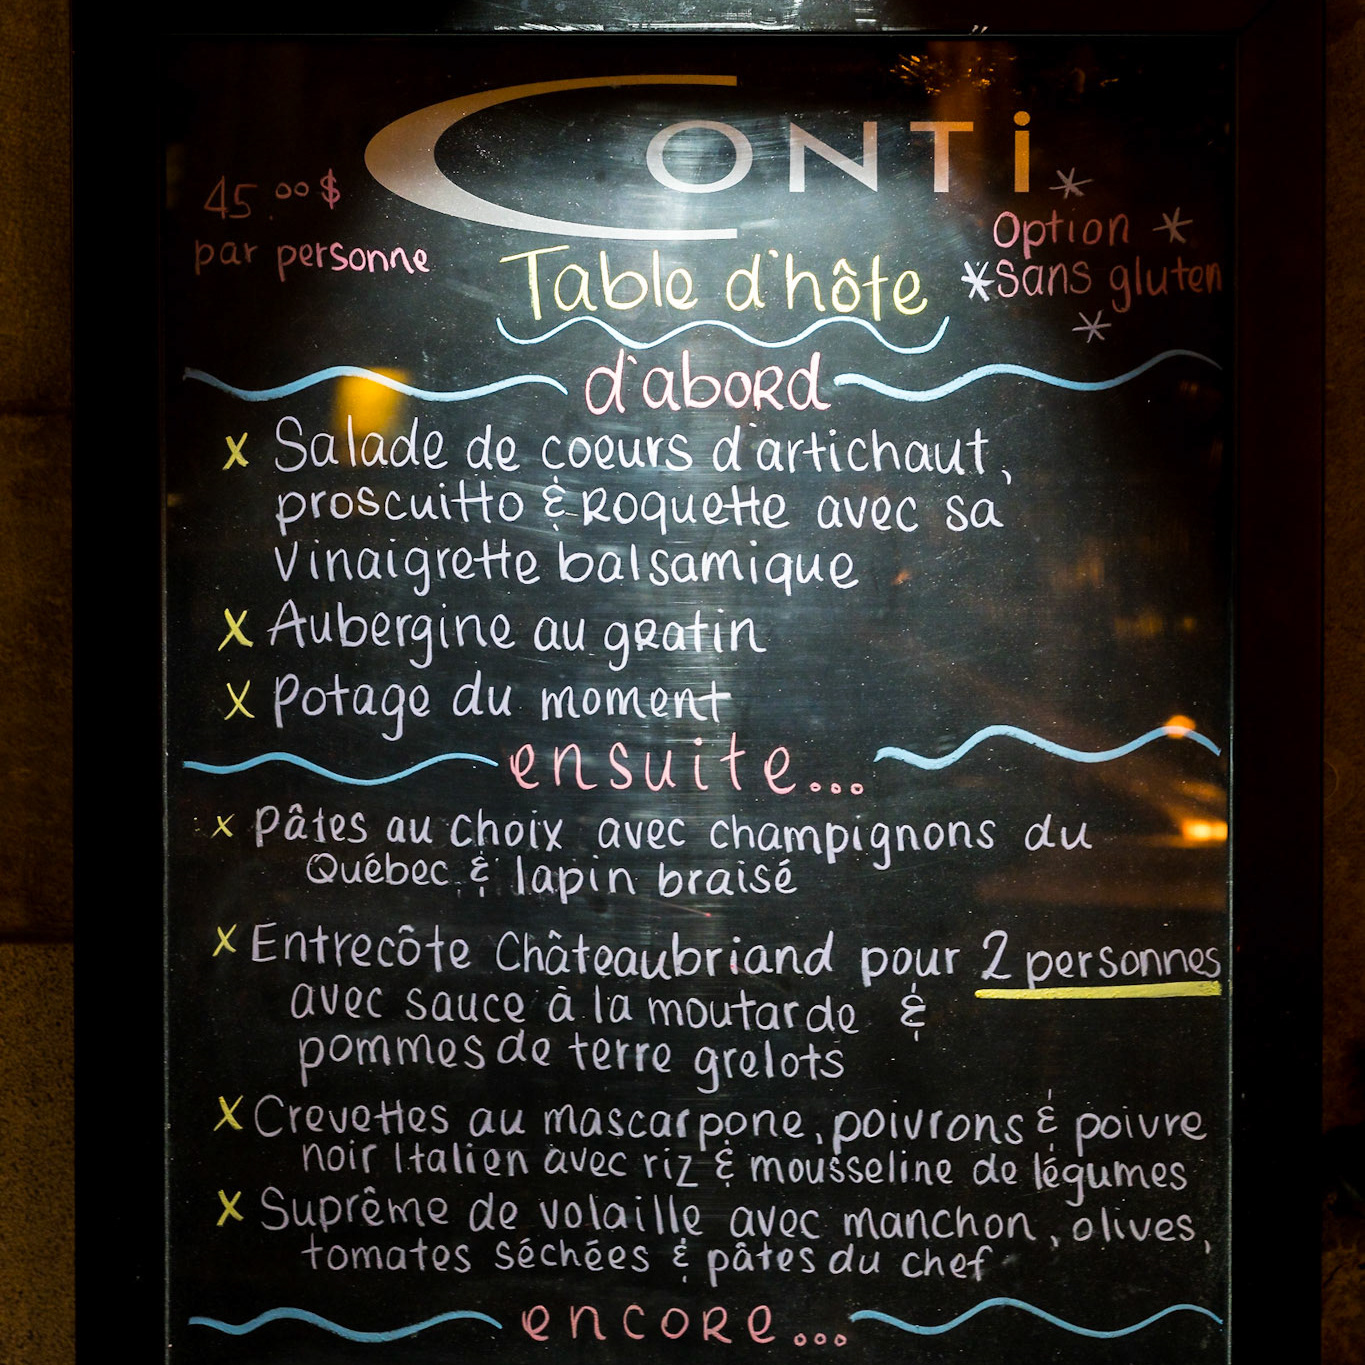 CONTi
45.00$
par personne
Option
Sans gluten
Table d'hôte
d'abord
x Salade de coeurs d'artichaut,
proscuitto & Roquette avec sa
vinaigrette balsamique
x Aubergine au gratin
x Potage du moment
ensuite...
x Pâtes au choix avec champignons du
Québec & lapin braisé
x Entrecôte Châteaubriand pour 2 personnes
avec sauce à la moutarde &
pommes de terre grelots
x Crevettes au mascarpone, poivrons & poivre
noir Italien avec riz & mousseline de légumes
x Suprême de volaille avec manchon, olives,
tomates séchées & pâtes du chef
encore...